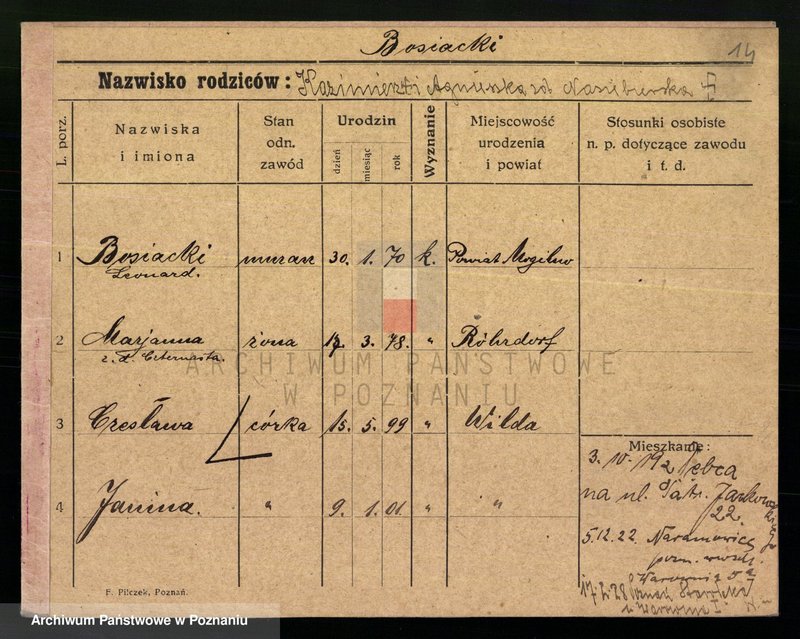 Bosiacki
14
Nazwisko rodziców: Kazimierz i Agnieszka
L. porz.
Nazwiska i imiona
Stan odn. zawód
Urodzin
dzień
miesiąc
rok
Wyznanie
Miejscowość urodzenia i powiat
Stosunki osobiste n. p. dotyczące zawodu i t. d.
1 Bosiacki murarz 30. 1. 70 k. Powiat Mogilno
Leonard.
2 Marjanna żona 17. 3. 78. " Röhrdorf
z. d. Czternasta.
ARCHIWUM PAŃSTWOWE
W POZNANIU
3 Czesława córka 15. 5. 99 " Wilda
4 Janina. " 9. 1. 01. " "
Mieszkanie:
3. 10. 19 z
na ul.
22.
5.12.22. Naramowice
pozn. wsch.
17.2.28
F. Pilczek, Poznań.
Archiwum Państwowe w Poznaniu